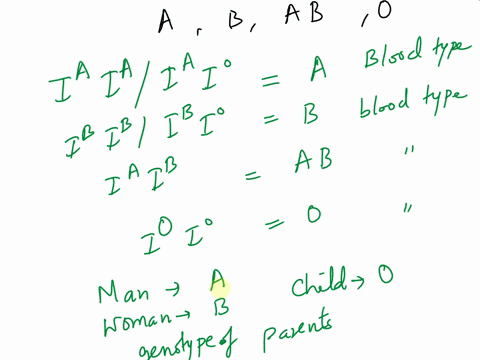 A , B, AB , O
I^A I^A / I^A I^o = A Blood type
I^B I^B / I^B I^o = B blood type
I^A I^B = AB "
I^O I^o = O "
Man → A Child → O
Woman → B
genotype of parents